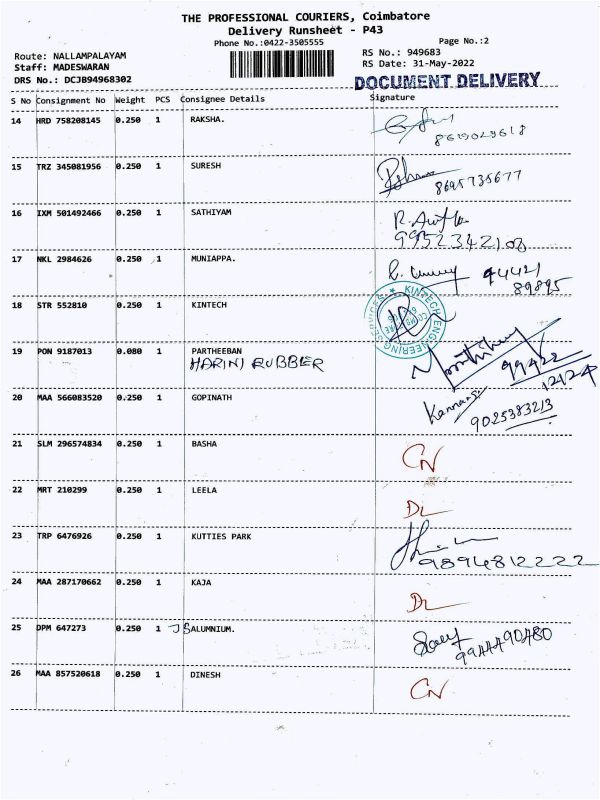 THE PROFESSIONAL COURIERS, Coimbatore
Delivery Runsheet - P43
Phone No.:0422-3505555
Page No.:2
Route: NALLAMPALAYAM
RS No.: 949683
Staff: MADESWARAN
RS Date: 31-May-2022
DRS No.: DCJB94968302
DOCUMENT DELIVERY
S No Consignment No Weight PCS Consignee Details Signature
14 HRD 758208145 0.250 1 RAKSHA.
15 TRZ 345081956 0.250 1 SURESH
8695735677
16 IXM 501492466 0.250 1 SATHIYAM
17 NKL 2984626 0.250 1 MUNIAPPA.
94421
89895
18 STR 552810 0.250 1 KINTECH
KINTECH ENGINEERING SERVICES
19 PON 9187013 0.080 1 PARTHEEBAN
HARINI RUBBER
99422
12124
20 MAA 566083520 0.250 1 GOPINATH
9025383213
21 SLM 296574834 0.250 1 BASHA CN
22 MRT 210299 0.250 1 LEELA DL
23 TRP 6476926 0.250 1 KUTTIES PARK
9894812222
24 MAA 287170662 0.250 1 KAJA DL
25 DPM 647273 0.250 1 JSALUMNIUM.
9944490480
26 MAA 857520618 0.250 1 DINESH CN